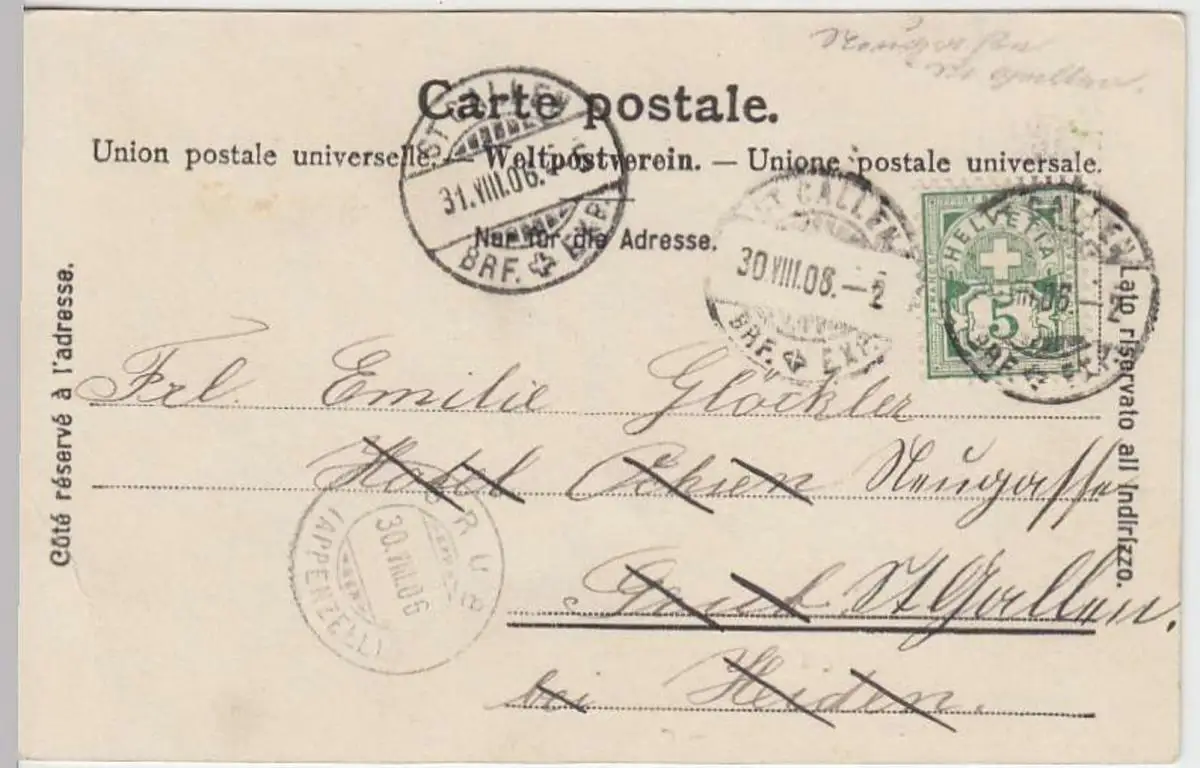 Neugasse
St Gallen.
Carte postale.
Union postale universelle. — Weltpostverein. — Unione postale universale.
Nur für die Adresse.
Côté réservé à l'adresse.
Lato riservato all indirizzo.
ST. GALLEN
31.VIII.06.
BRF. EXP.
ST. GALLEN
30 VIII.06.—2
BRF. EXP.
HELVETIA
5
GALLEN
06.—2
BRF. EXP.
Frl. Emilie Glöckler
Hotel Ochsen Neugasse
St Gallen.
bei Heiden.
(APPENZELL)
30.VIII.06